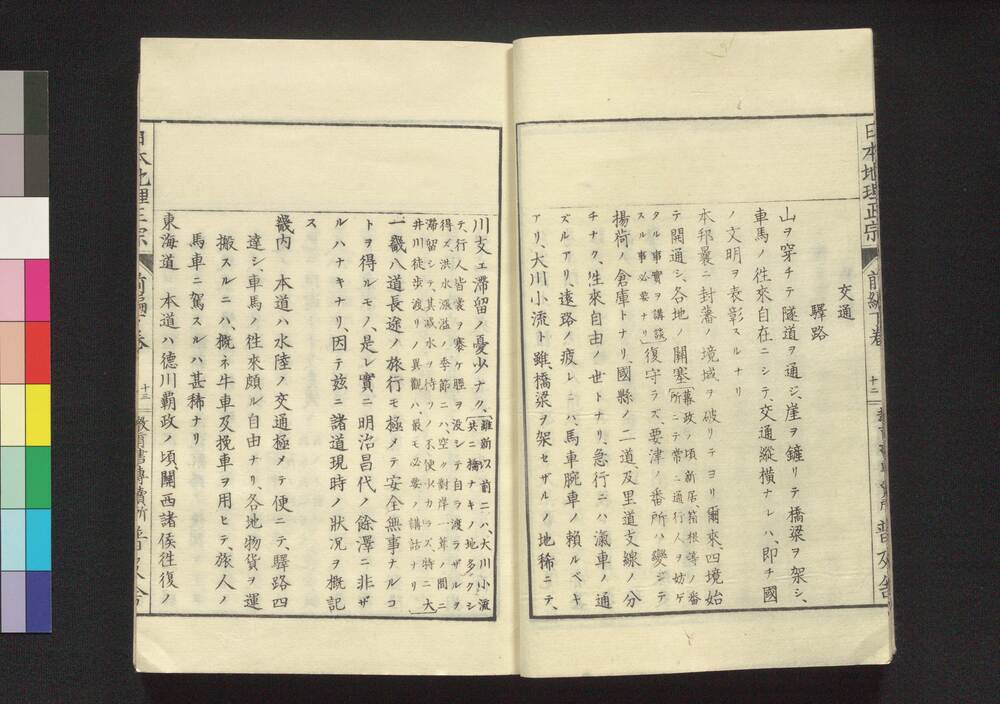 日本地理正宗
前編下卷
十二
普及舍
交通
驛路
山ヲ穿チテ隧道ヲ通ジ、崖ヲ鏟リテ橋梁ヲ架シ、
車馬ノ往來自在ニシテ、交通縱橫ナレハ、卽チ國
ノ文明ヲ表彰スルナリ
本邦曩ニ封藩ノ境域ヲ破リテヨリ爾來四境始
テ開通シ、各地ノ關塞
幕政ノ頃新居箱根等ノ番
所ニテ常ニ通行人ヲ妨ゲ
タル事實ヲ講談
スル事必要ナリ
復守ラズ、要津ノ番所ハ變ジテ
揚荷ノ倉庫トナリ、國縣ノ二道、及里道支線ノ分
チナク、往來自由ノ世トナリ、急行ニハ瀛車ノ通
ズルアリ、遠路ノ疲レニハ、馬車腕車ノ賴ルベキ
アリ、大川小流ト雖、橋梁ヲ架セザルノ地稀ニテ、
川支エ滯留ノ憂少ナク、
維新以前ニハ、大川小流
共ニ橋ナキノ地多クシ
テ、行人皆裳ヲ褰ケ脛ヲ沒シテ自ラ渡ラザルヲ
得ズ、洪水漲溢ノ季節ニハ、空ク對岸一葦ノ間ニ
滯留シテ、其減水ヲ待ツノ不便少カラズ、特ニ大
井川徒步渡リノ異觀ハ、最モ必要ノ講話ナリ
一畿八道長途ノ旅行モ極メテ安全無事ナルコ
トヲ得ルモノ、是レ實ニ明治昌代ノ餘澤ニ非ザ
ルハナキナリ、因テ玆ニ諸道現時ノ狀況ヲ槪記
ス
畿內　本道ハ水陸ノ交通極メテ便ニテ、驛路四
達シ、車馬ノ往來頗ル自由ナリ、各地物貨ヲ運
搬スルニハ、槪ネ牛車及挽車ヲ用ヒテ、旅人ノ
馬車ニ駕スルハ甚稀ナリ
東海道　本道ハ德川覇政ノ頃、關西諸侯往復ノ
日本地理正宗
十三